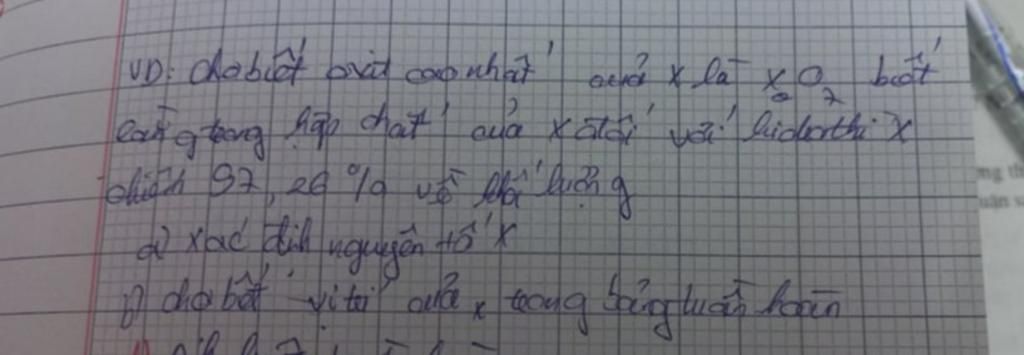 VD: cho biết oxit cao nhất của X là X₂O₇ biết
rằng trong hợp chất của X đối với hidro thì X
chiếm 97,26 % về khối lượng
a) xác định nguyên tố X
b) cho biết vị trí của X trong bảng tuần hoàn